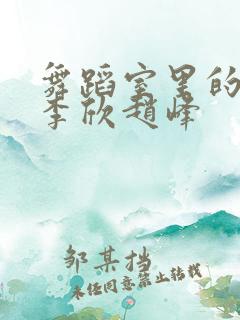 舞蹈室里的
李欣赵峰
邹某挡
未经同意禁止转载